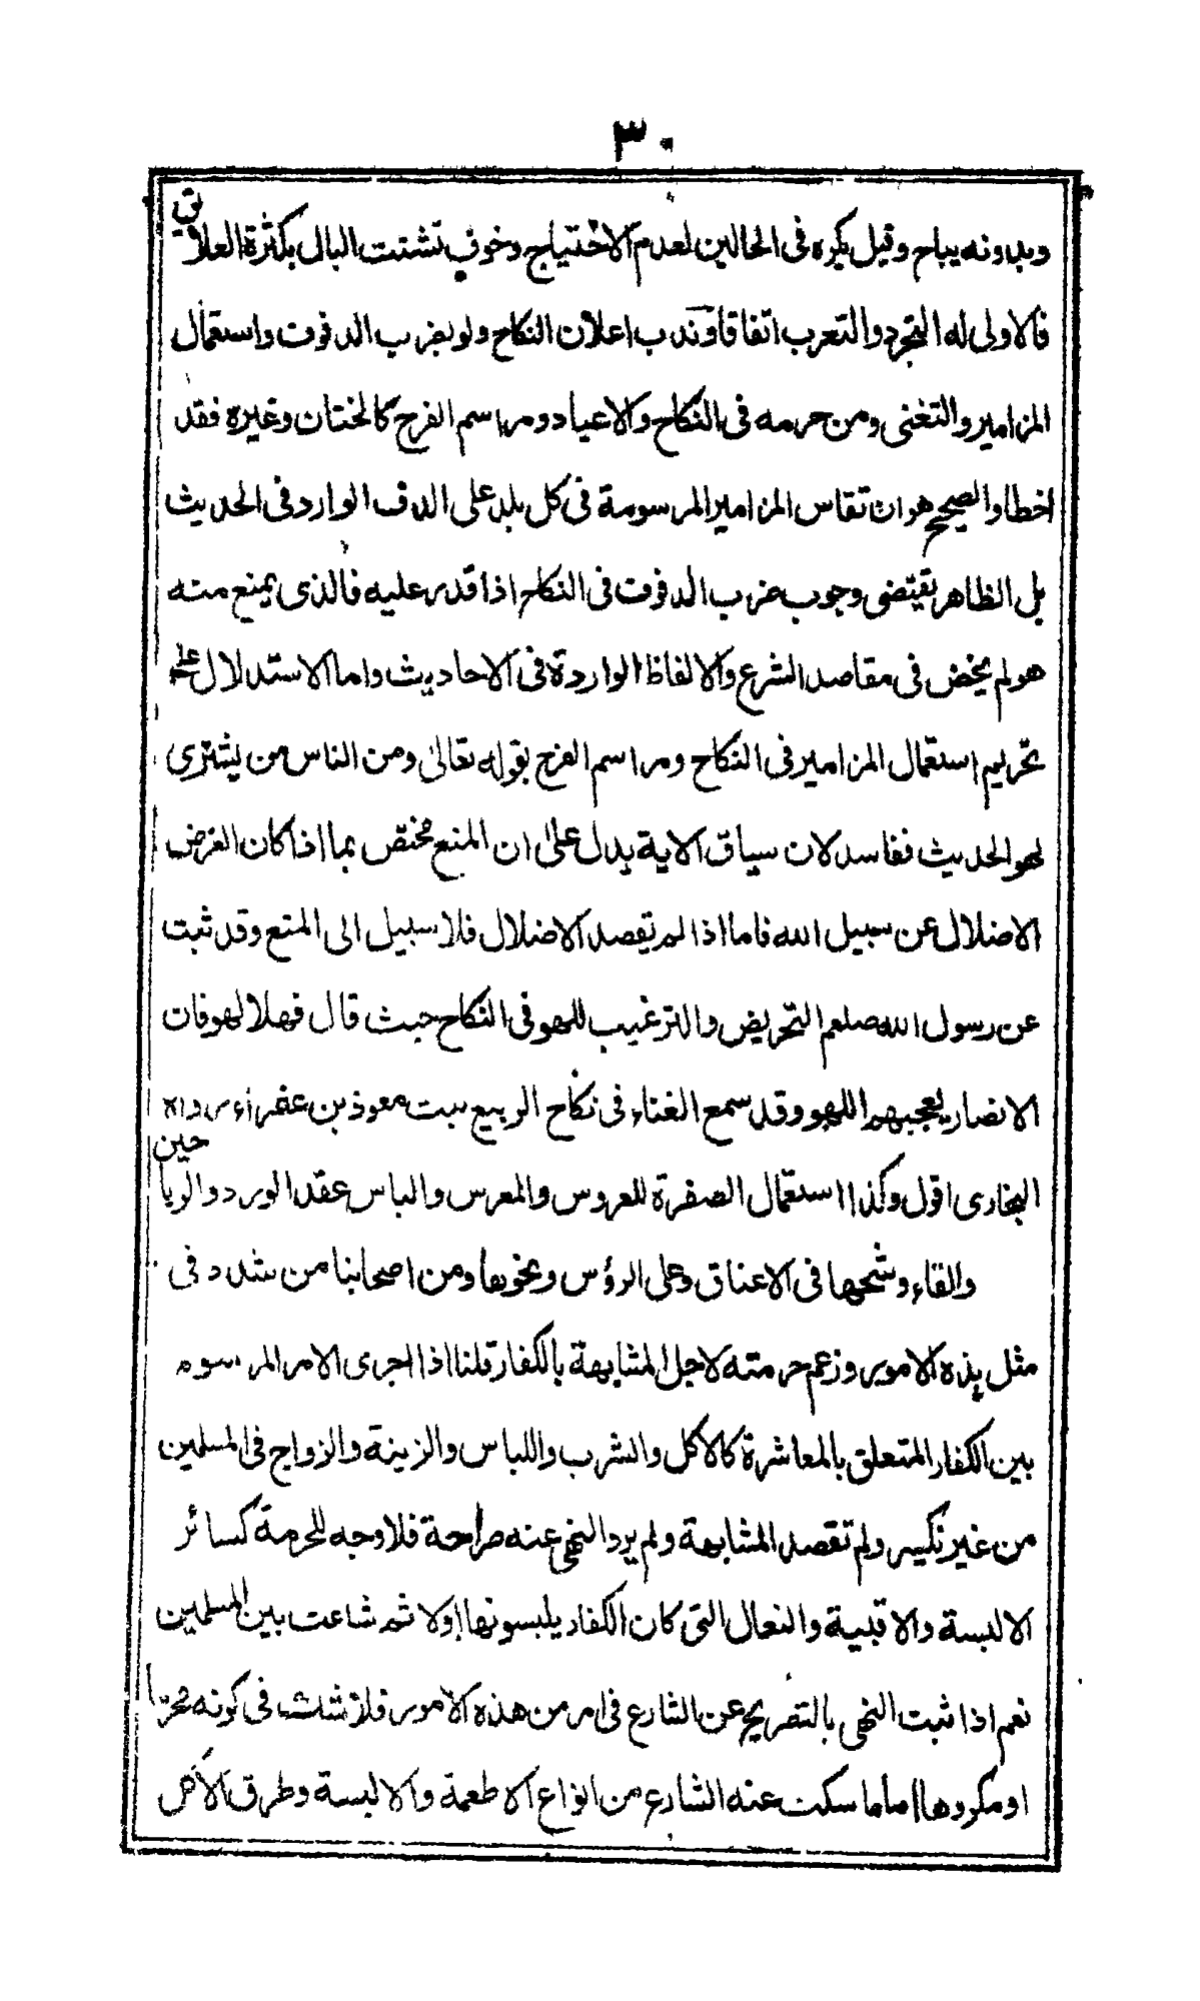 ٣٠
وبدونه يباح وقيل يكره فى الحالين لعدم الاحتياج وخوف تشتت البال بكثرة العلائق
فالاولى له التجرد والتعرب اتفاقا وندب اعلان النكاح ولو بضرب الدفوف واستعمال
المزامير والتغنى ومن حرمه فى النكاح والاعياد ومراسم الفرح كالختان وغيره فقد
اخطا والصحيح هو ان تقاس المزامير المرسومة فى كل بلد على الدف الوارد فى الحديث
بل الظاهر يقتضى وجوب ضرب الدفوف فى النكاح اذا قدر عليه فالذى يمنع منه
هو لم يخض فى مقاصد الشرع والالفاظ الواردة فى الاحاديث واما الاستدلال على
تحريم استعمال المزامير فى النكاح ومراسم الفرح بقوله تعالى ومن الناس من يشترى
لهو الحديث ففاسد لان سياق الاية يدل على ان المنع مختص بما اذا كان الغرض
الاضلال عن سبيل الله فاما اذا لم يقصد الاضلال فلا سبيل الى المنع وقد ثبت
عن رسول الله صلعم التحريض والترغيب للهو فى النكاح حيث قال فهلا لهو فان
الانصار يعجبهم اللهو وقد سمع الغناء فى نكاح الربيع بنت معوذ بن عفراء رواه
البخارى اقول وكذا استعمال الصفرة للعروس والمعرس والباس عقد الورد والرياحين
والقاء وشحها فى الاعناق وعلى الرؤس ونحوها ومن اصحابنا من شدد فى
مثل هذه الامور وزعم حرمته لاجل المشابهة بالكفار قلنا اذا جرى الامر المرسوم
بين الكفار المتعلق بالمعاشرة كالاكل والشرب واللباس والزينة والزواج فى المسلمين
من غير نكير ولم تقصد المشابهة ولم يرد النهى عنه صراحة فلا وجه للحرمة كسائر
الالبسة والاقبية والنعال التى كان الكفار يلبسونها اولا ثم شاعت بين المسلمين
نعم اذا ثبت النهى بالتصريح عن الشارع فى امر من هذه الامور فلا شك فى كونه محرما
او مكروها اما ما سكت عنه الشارع من انواع الاطعمة والالبسة وطرق الاكل